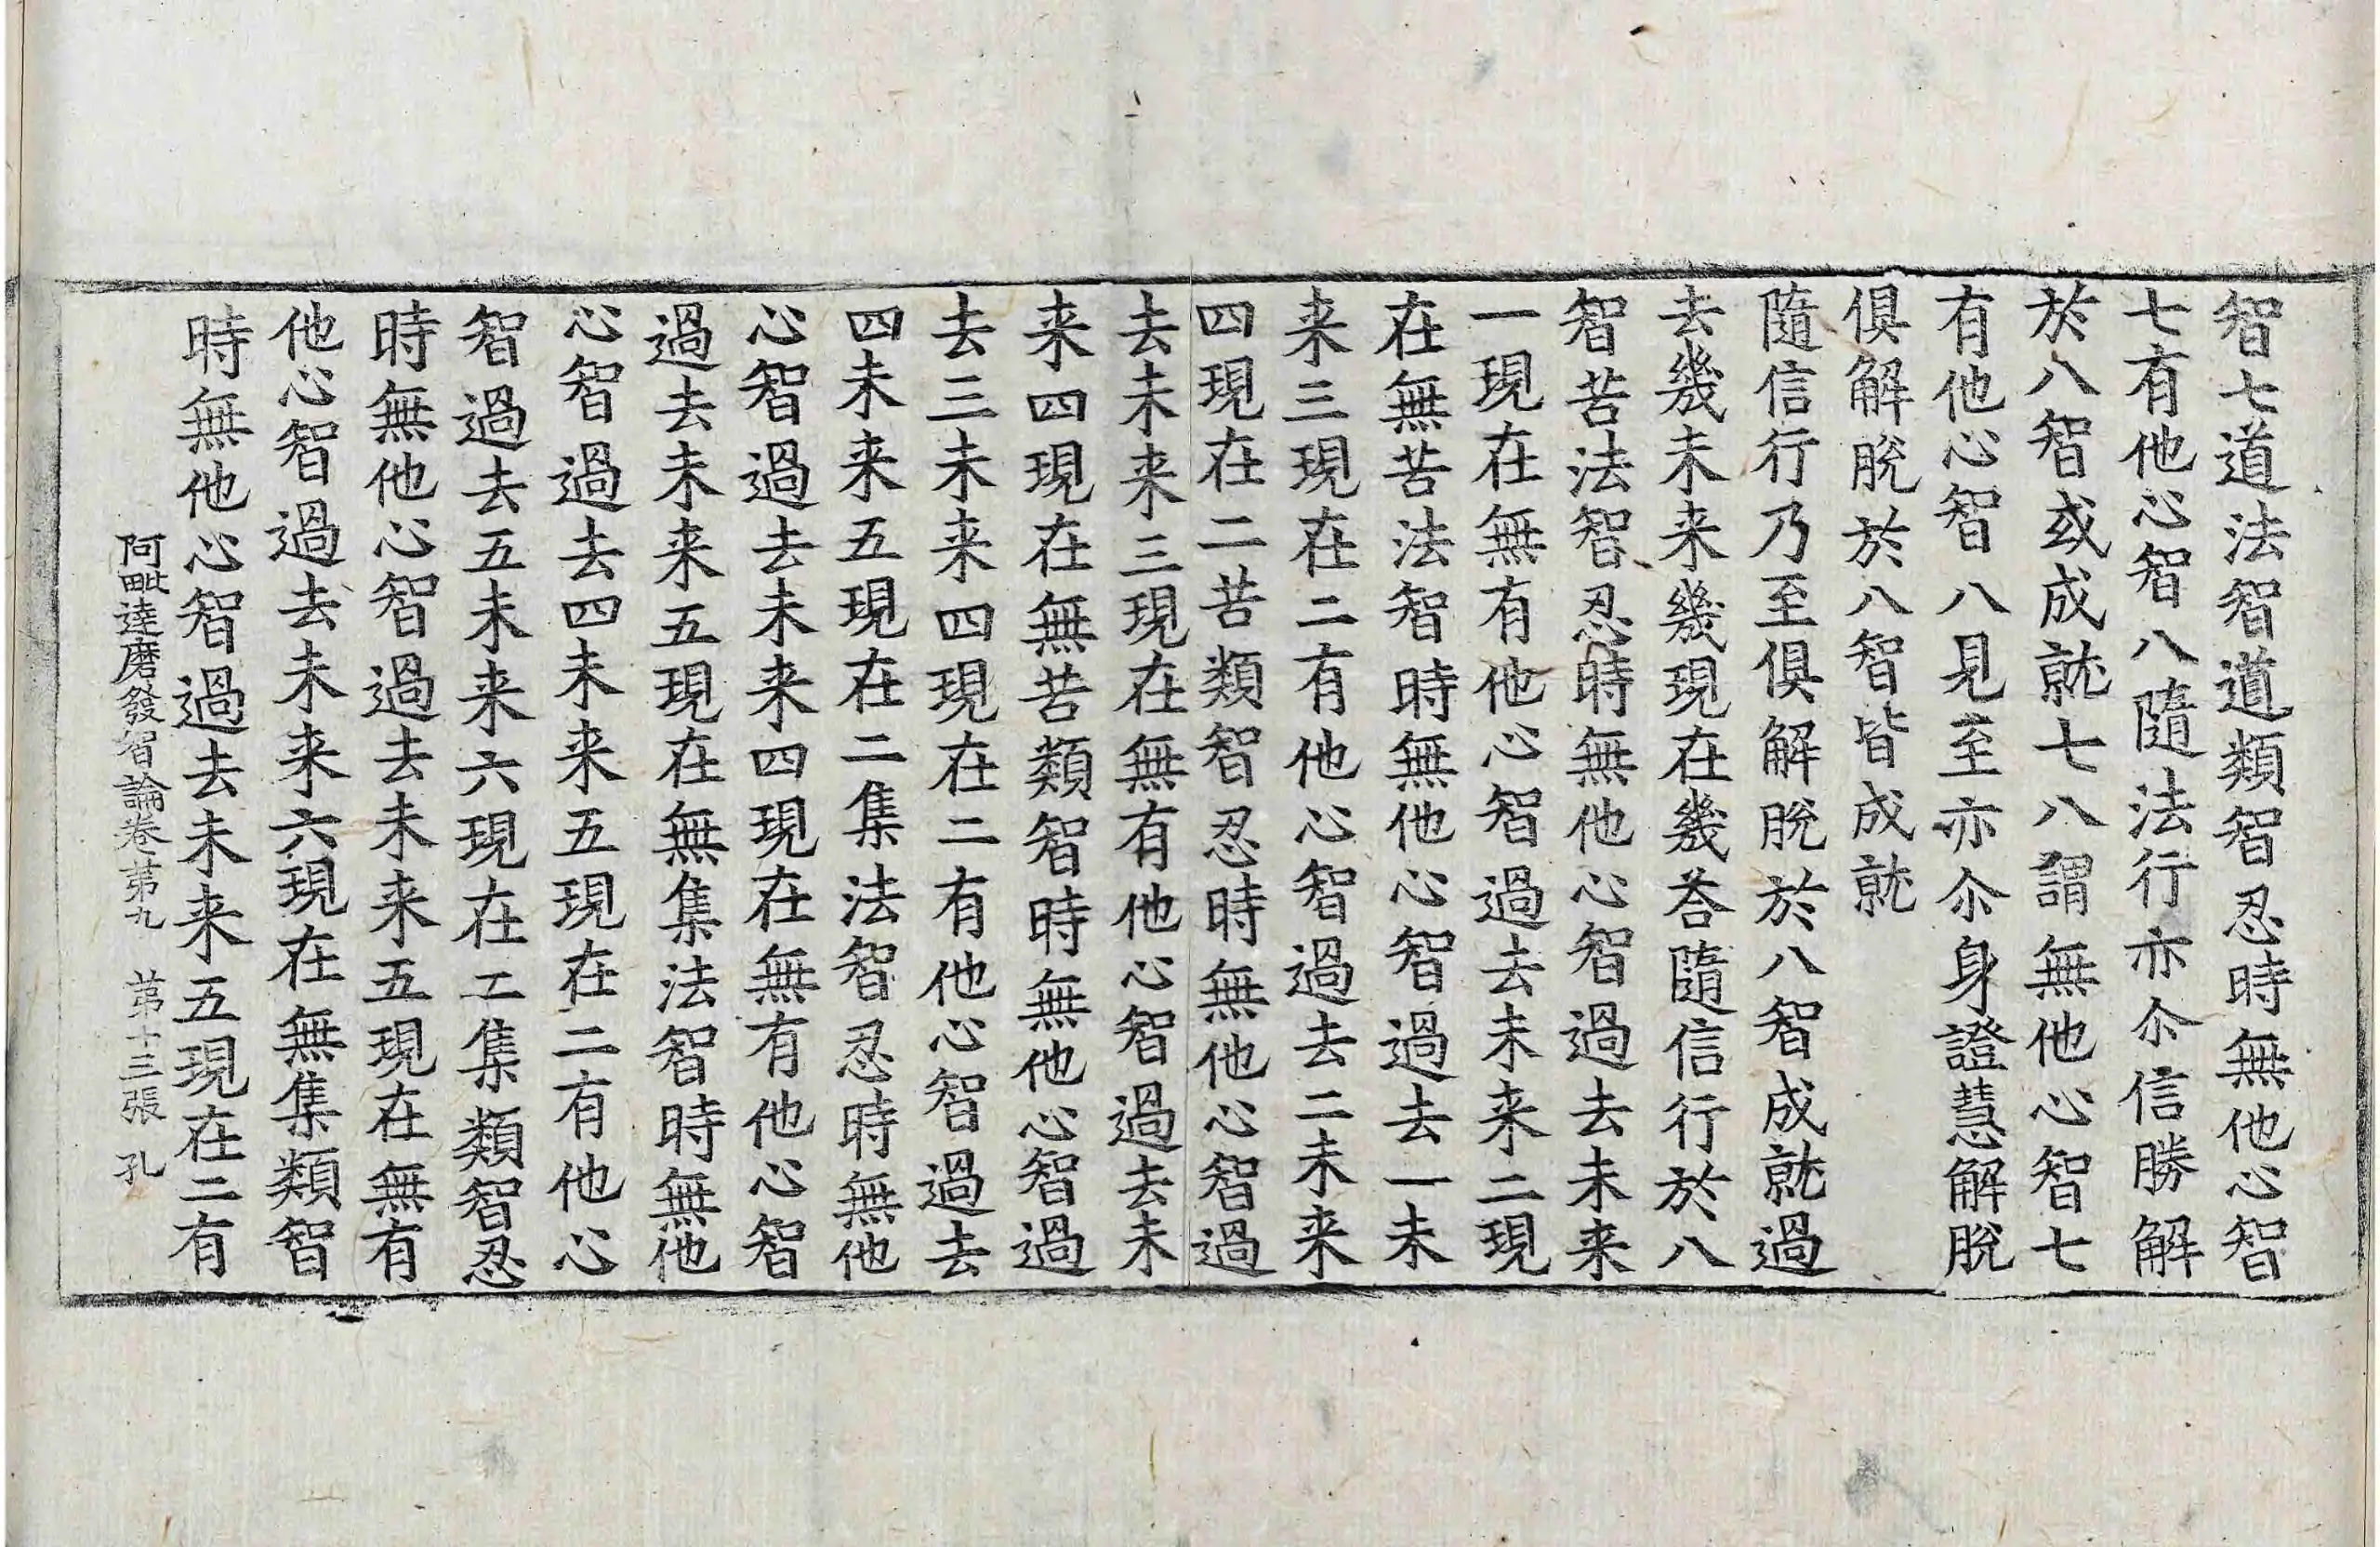 智七道法智道類智忍時無他心智
七有他心智八隨法行亦尒信勝解
於八智或成就七八謂無他心智七
有他心智八見至亦尒身證慧解脫
俱解脫於八智皆成就
隨信行乃至俱解脫於八智成就過
去幾未来幾現在幾荅隨信行於八
智苦法智忍時無他心智過去未来
一現在無有他心智過去未来二現
在無苦法智時無他心智過去一未
来三現在二有他心智過去二未来
四現在二苦類智忍時無他心智過
去未来三現在無有他心智過去未
来四現在無苦類智時無他心智過
去三未来四現在二有他心智過去
四未来五現在二集法智忍時無他
心智過去未来四現在無有他心智
過去未来五現在無集法智時無他
心智過去四未来五現在二有他心
智過去五未来六現在二集類智忍
時無他心智過去未来五現在無有
他心智過去未来六現在無集類智
時無他心智過去未来五現在二有
阿毗達磨發智論卷苐九 苐十三張 孔